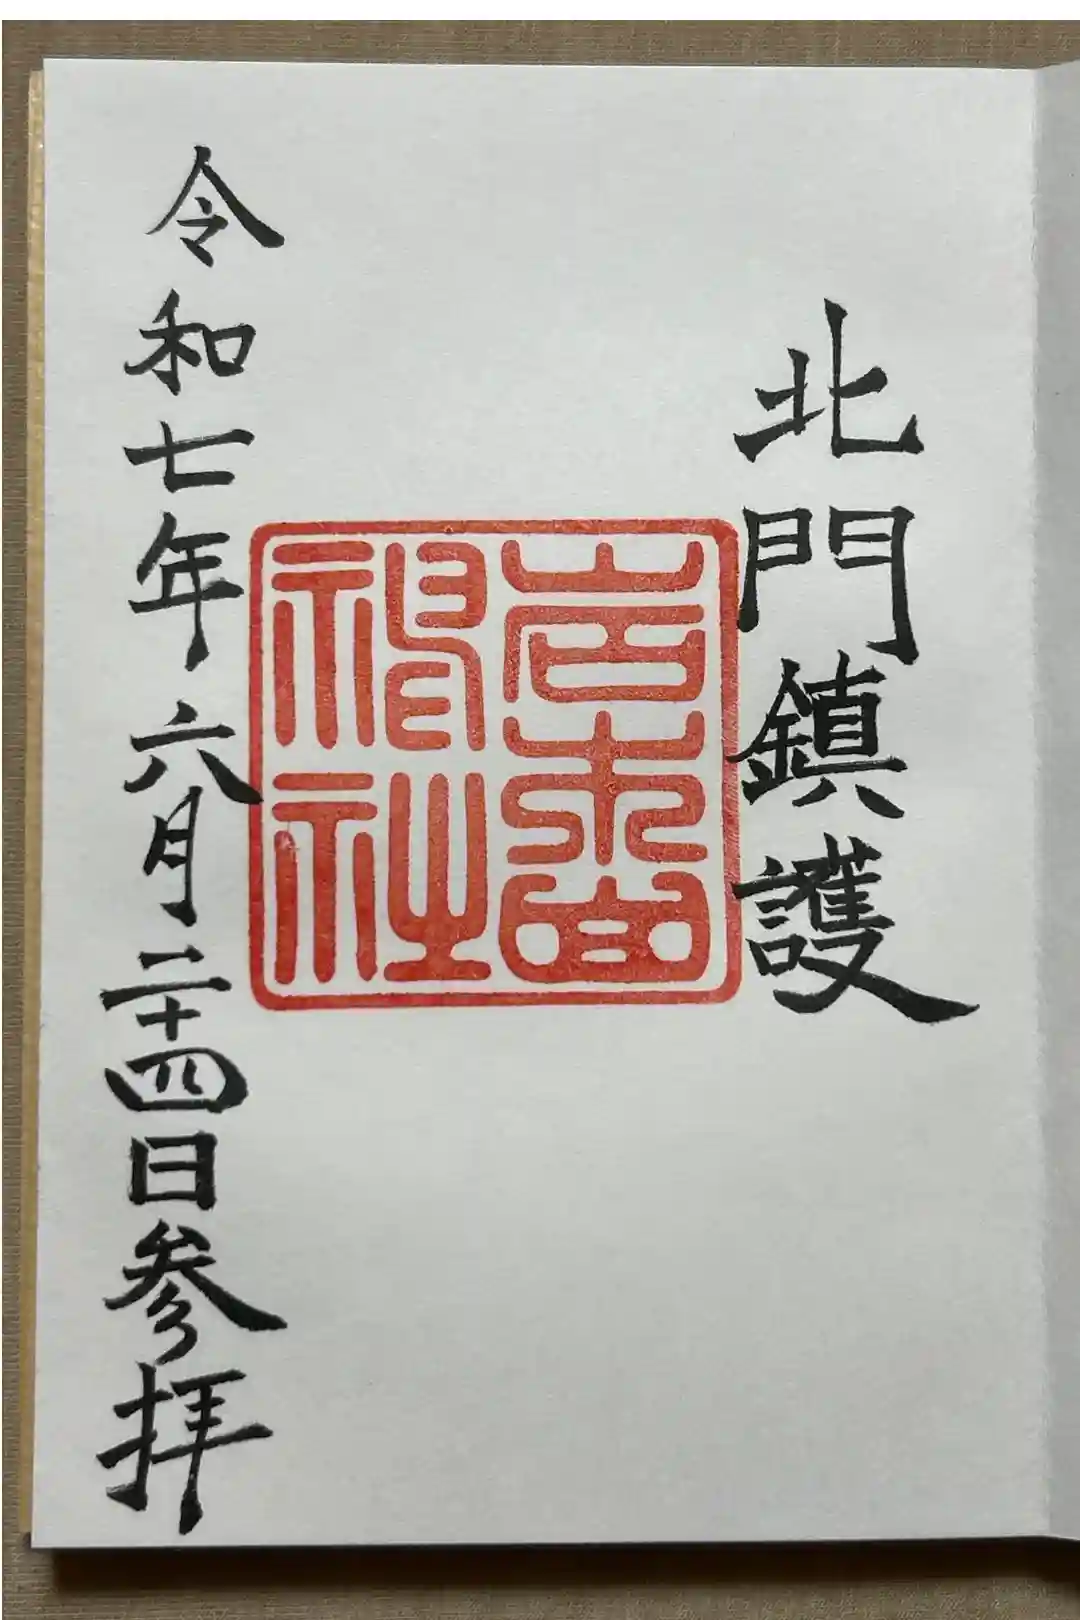 北門鎮護
岩木山
神社
令和七年六月二十四日参拝